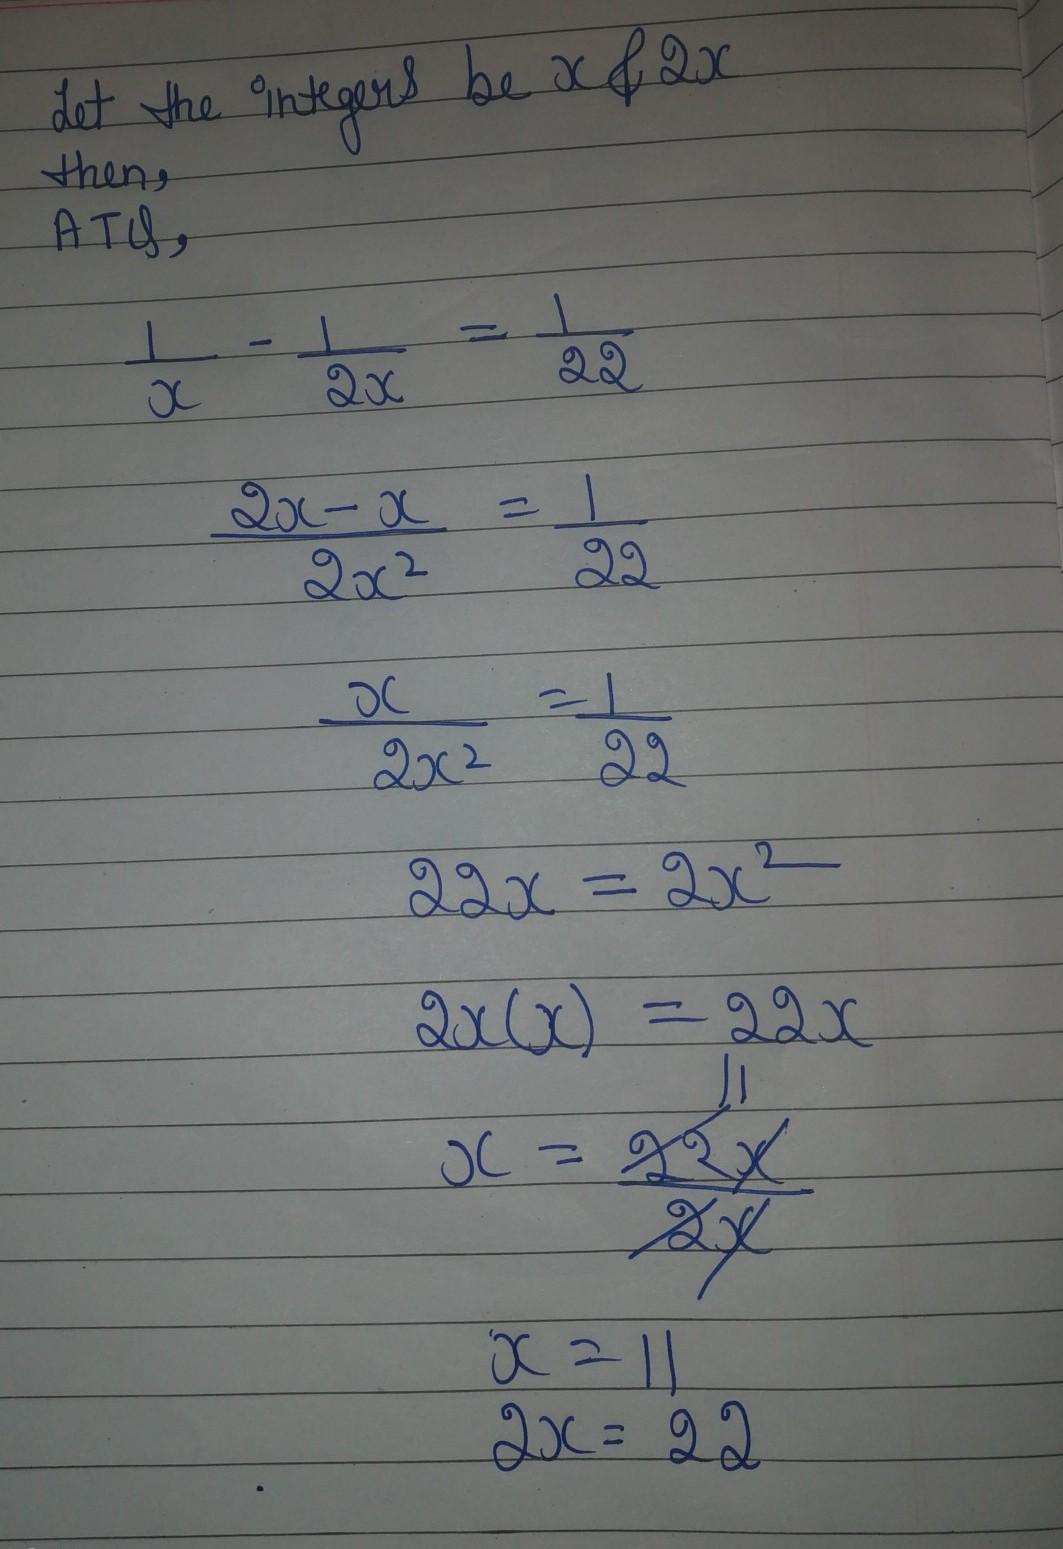 Let the integers be x & 2x
then,
ATQ,
1/x - 1/2x = 1/22
2x - x/2x² = 1/22
x/2x² = 1/22
22x = 2x²
2x(x) = 22x
11
x = 22x/2x
x = 11
2x = 22